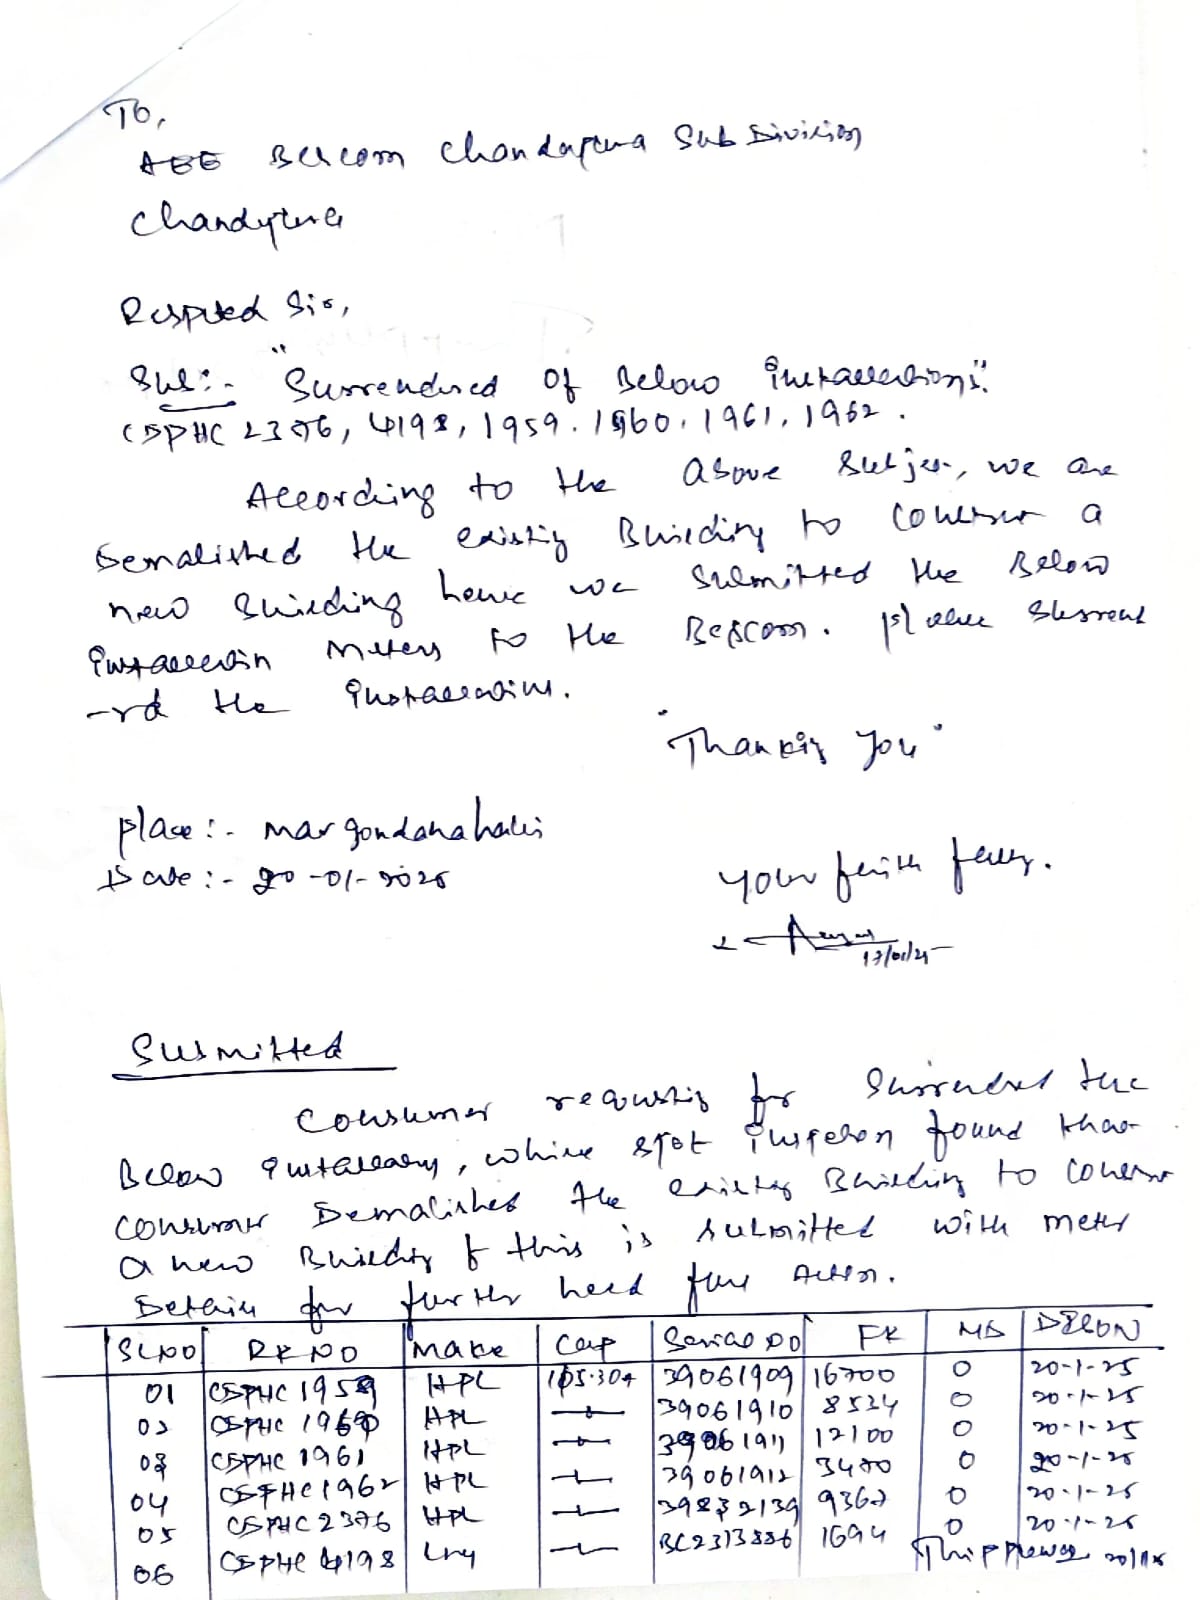 To,
AEE Bescom Chandapura Sub Division
Chandapura
Respected Sir,
Sub:- "Surrendered Of Below Installations".
CSPHC 2376, 4198, 1959. 1960, 1961, 1962.
According to the above Subject, we are
Demalished the existing Building to Construct a
new Building hence we Submitted the Below
Installation Meters to the Bescom. please Surrend
-rd the Installations.
"Thanking You"
place:- Margondanahalli
Date:- 20-01-2025
Your faithfully.
17/01/25
Submitted
Consumer requesting for Surrended the
Below Installation, while spot Inspection found that
Consumer Demalished the existing Building to Construct
a new Building & this is submitted with meter
Details for further need full Action.
SLNO RRNO Make Cap Serial NO FR MD DSCON
01 CSPHC 1959 HPL 105.30A 39061909 16700 0 20-1-25
02 CSPHC 1960 HPL 39061910 8534 0 20-1-25
03 CSPHC 1961 HPL 39061911 12100 0 20-1-25
04 CSPHC 1962 HPL 39061912 3470 0 20-1-25
05 CSPHC 2376 HPL 39832139 9367 0 20-1-25
06 CSPHC 4198 BC2313886 1694 0 20-1-25
20/1/25